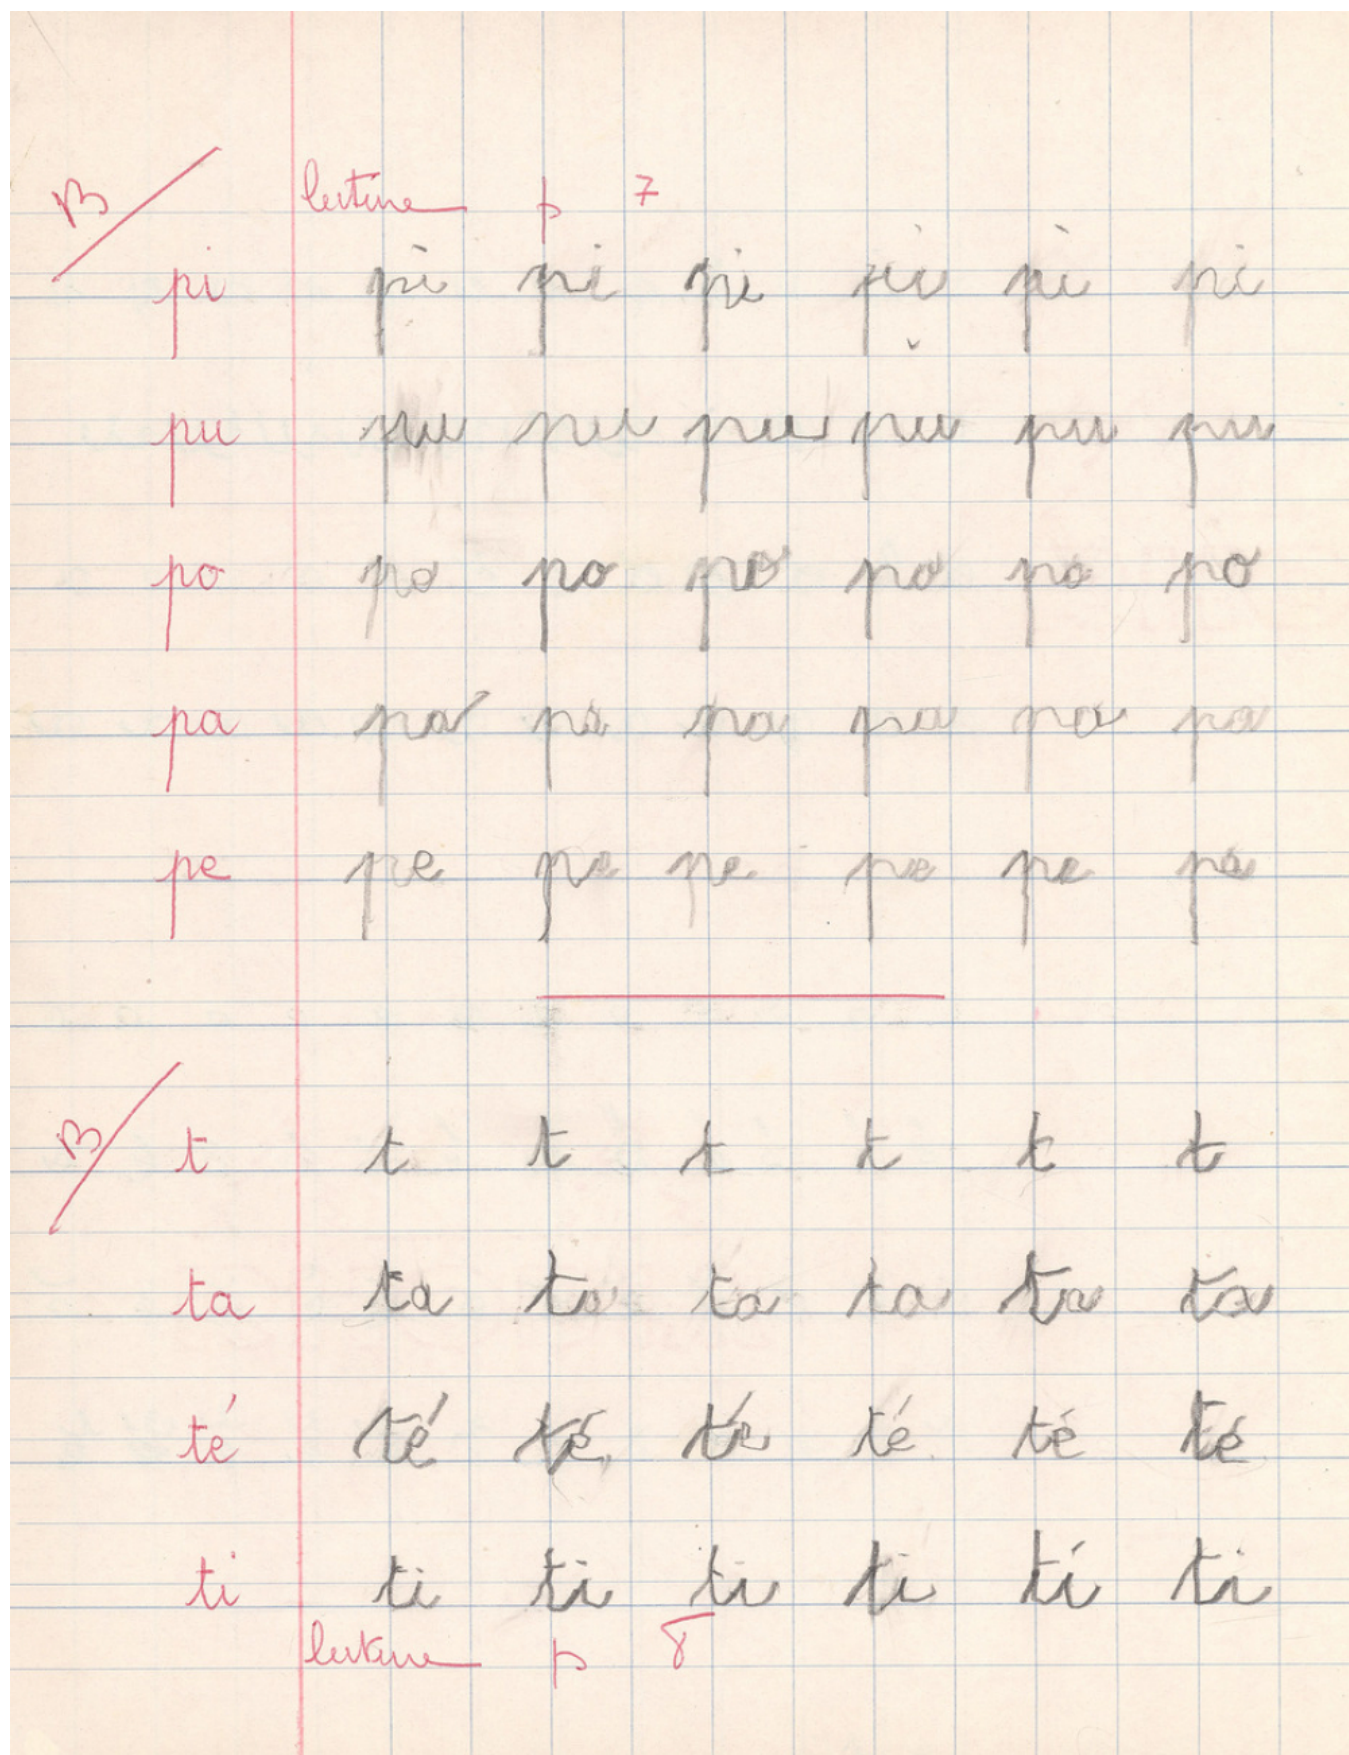 B lecture p 7
pi pi pi pi pi pi pi
pu pu pu pu pu pu pu
po po po po po po po
pa pa pa pa pa pa pa
pe pe pe pe pe pe pe
B t t t t t t t
ta ta ta ta ta ta ta
té té té té té té té
ti ti ti ti ti ti ti
lecture p 8